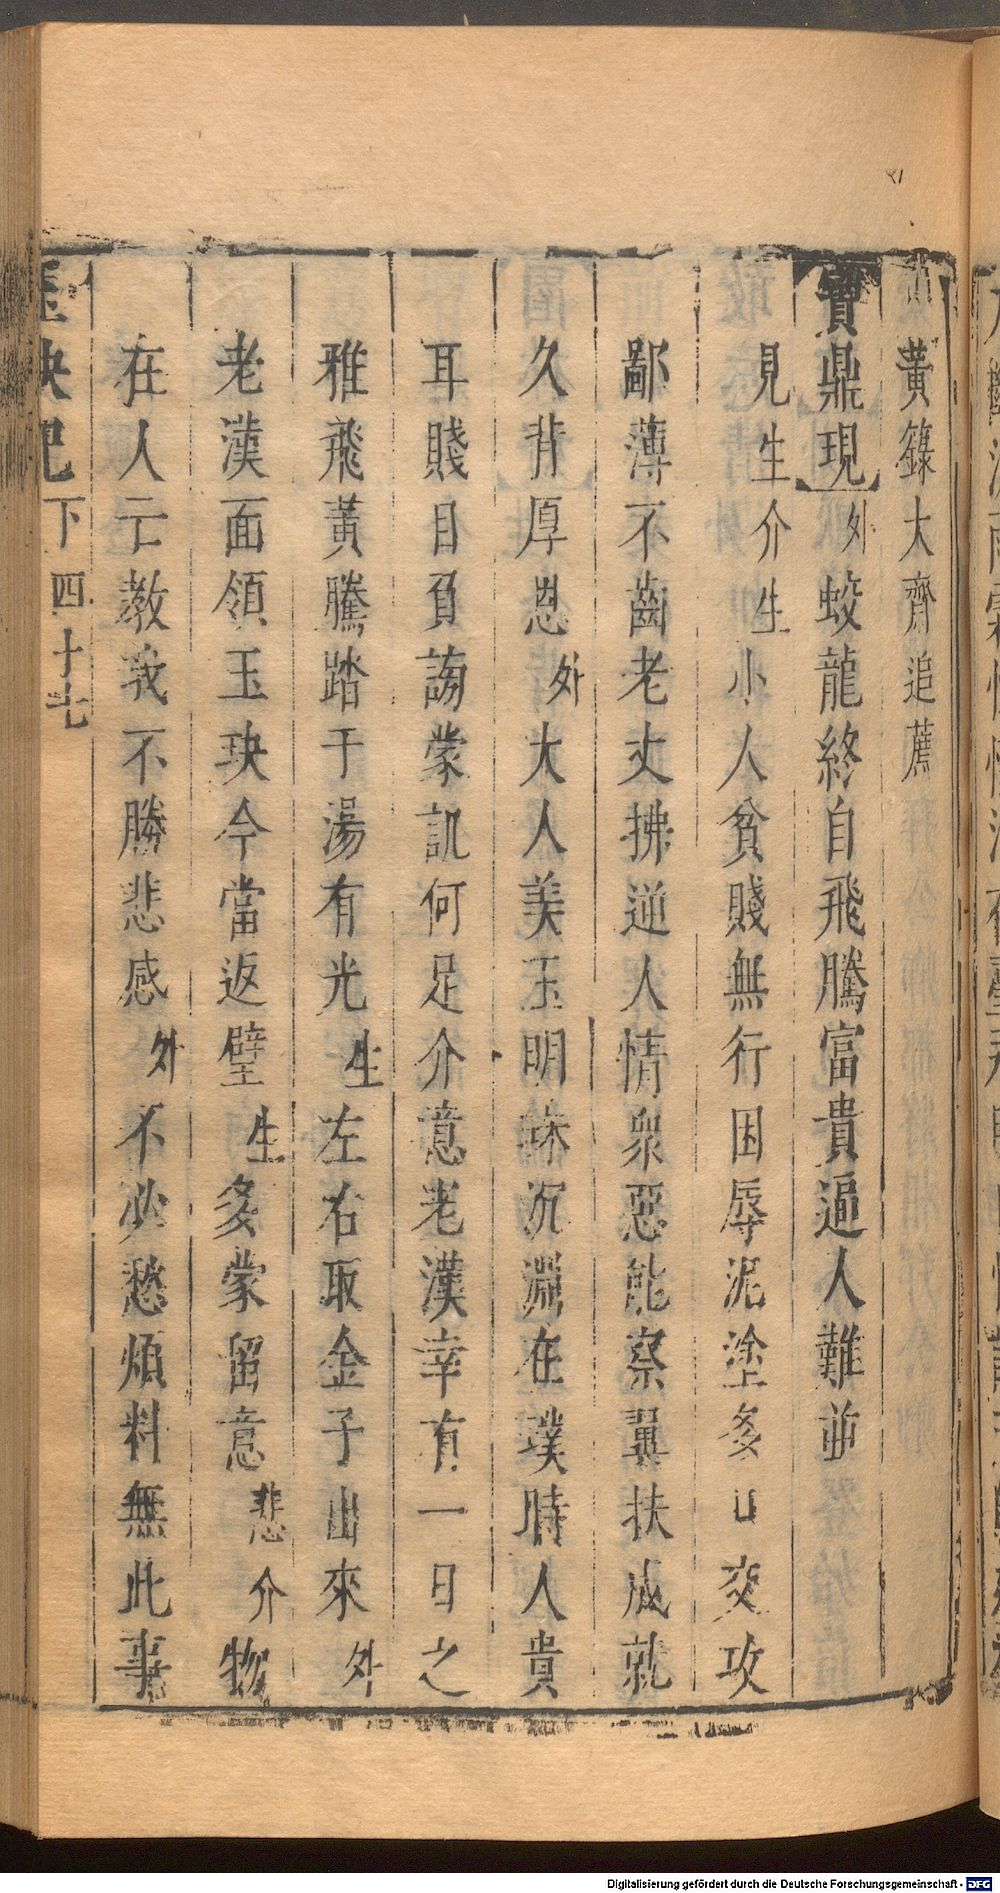 黃籙大齊追薦
寶鼎現外蛟龍終自飛騰富貴逼人難逥
見生介生小人貧賤無行困辱泥塗多口交攻
鄙薄不齒老丈拂逆人情衆惡能察翼扶成就
久背厚恩外大人美玉明珠沉淵在璞時人貴
耳賤目負謗蒙訕何足介意老漢幸有一日之
雅飛黃騰踏于湯有光生左右取金子出來外
老漢面領玉玦今當返璧生多蒙留意悲介物
在人亡教我不勝悲感外不必愁煩料無此事
玉玦記下 四十七
Digitalisierung gefördert durch die Deutsche Forschungsgemeinschaft - DFG